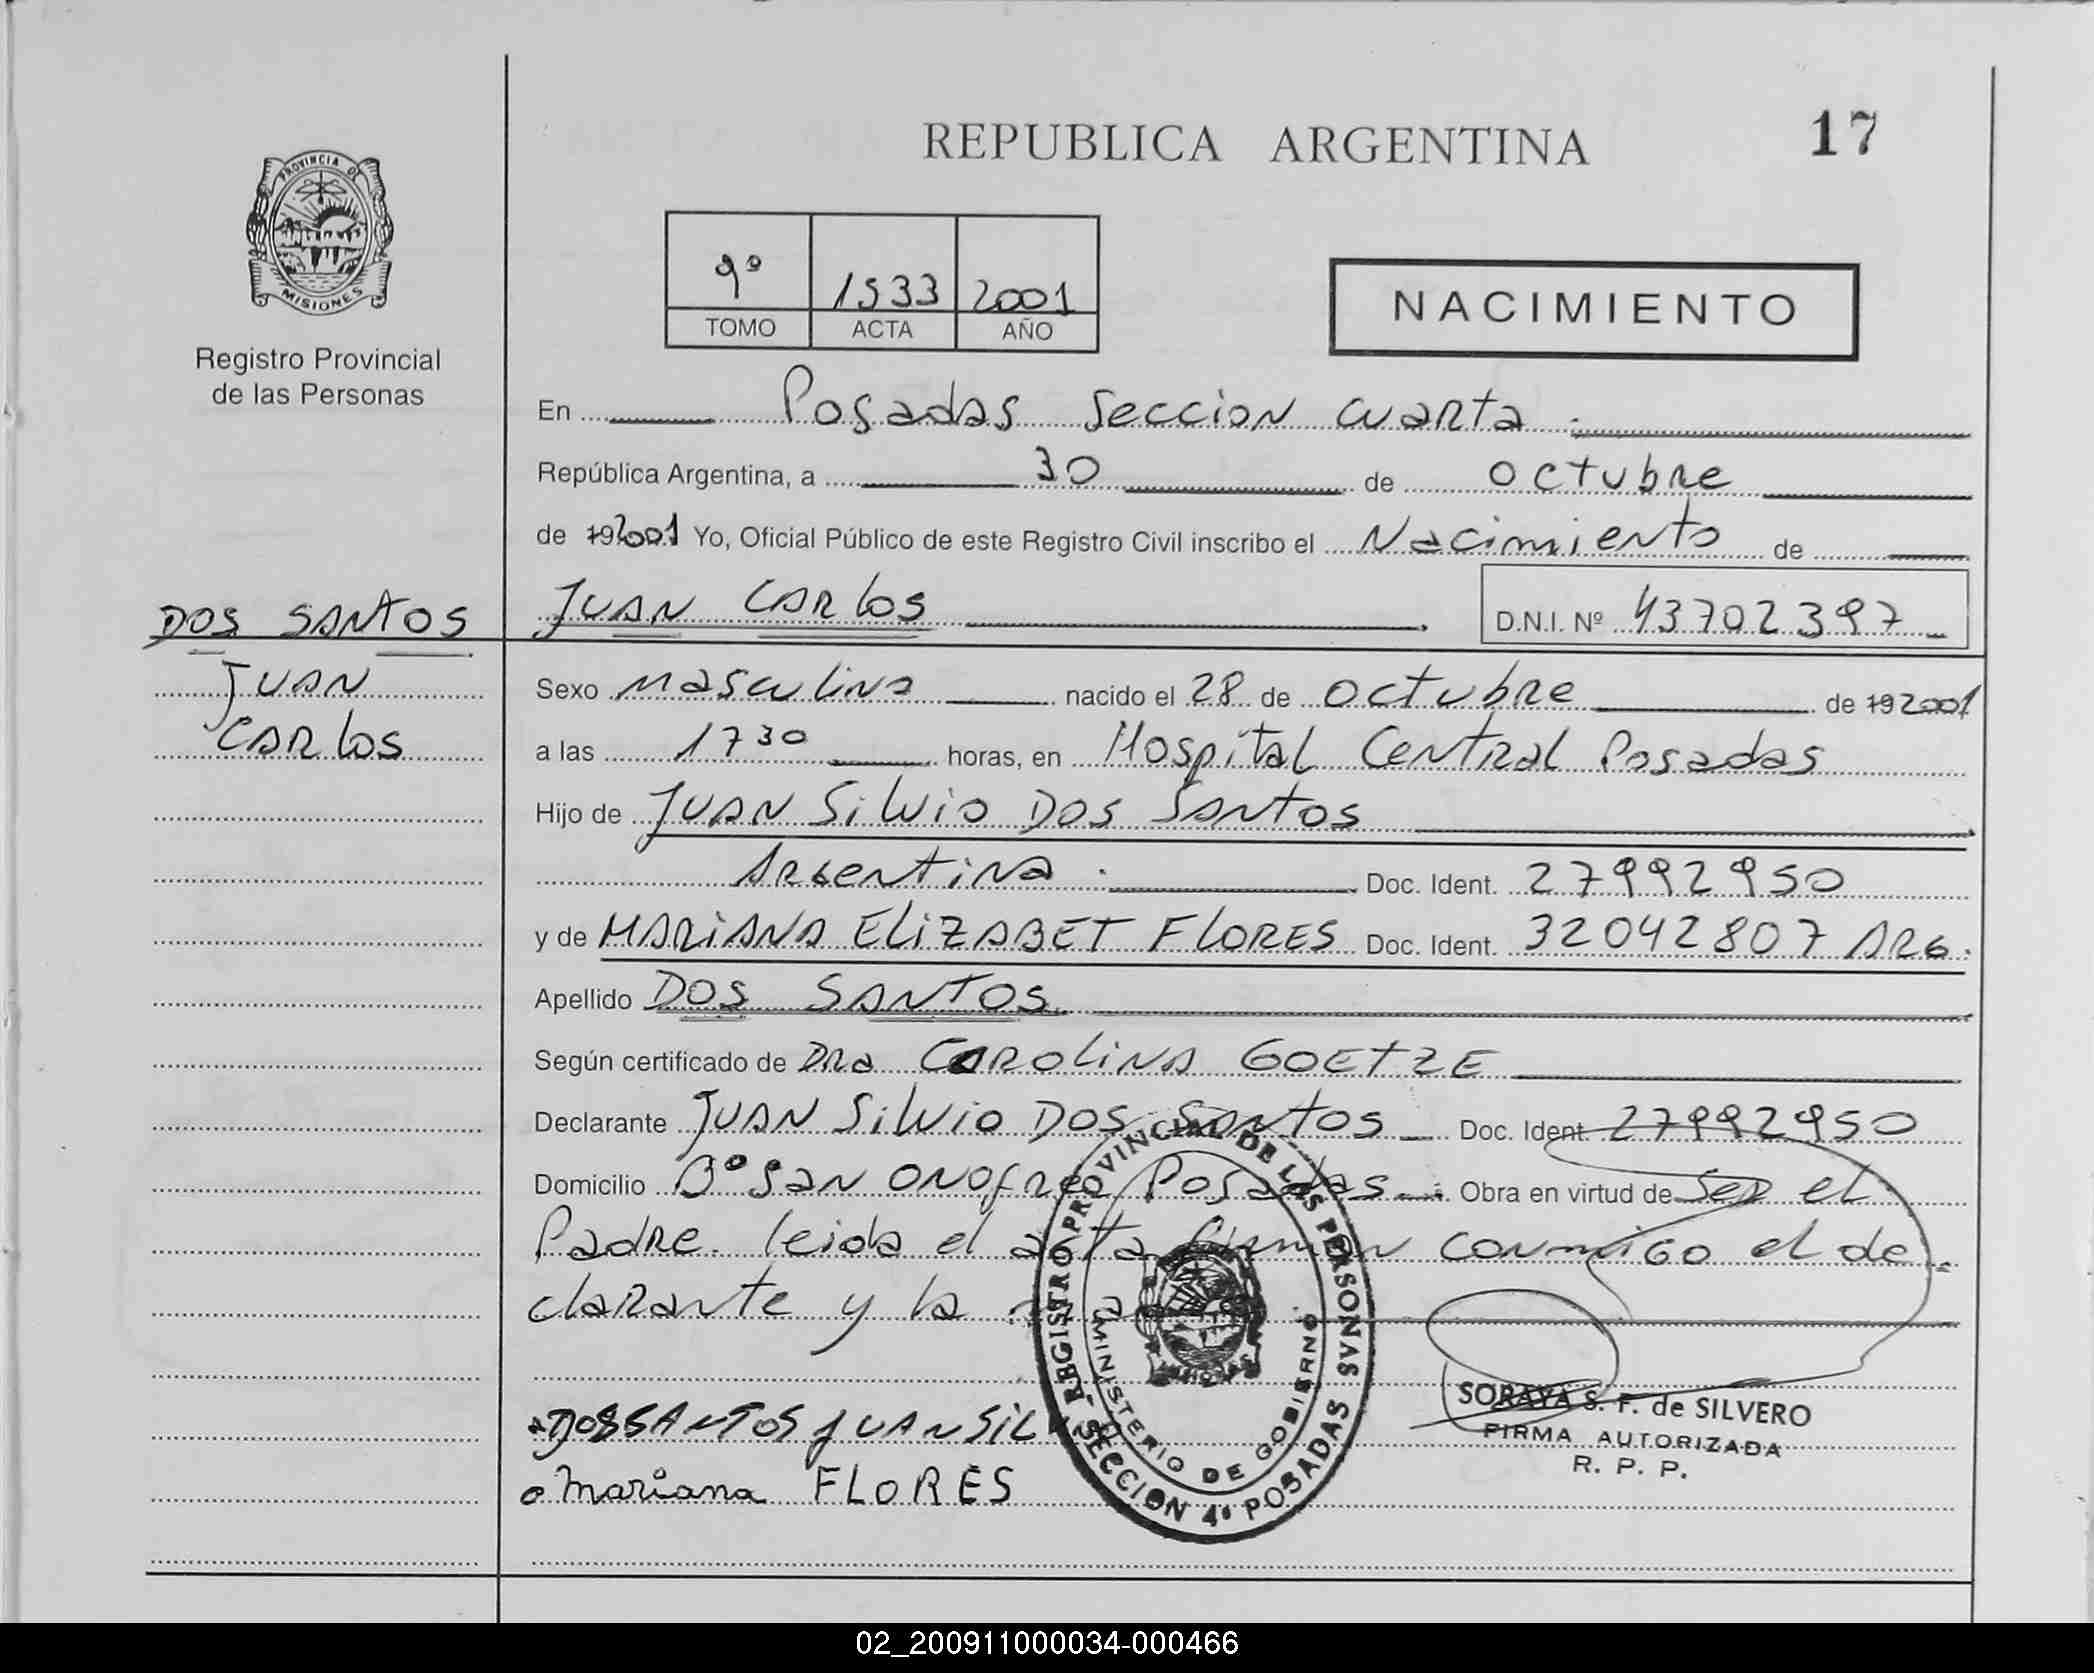 REPUBLICA ARGENTINA
17
PROVINCIA DE
MISIONES
Registro Provincial
de las Personas
9º 1533 2001
TOMO ACTA AÑO
NACIMIENTO
En Posadas Seccion cuarta.
República Argentina, a 30 de octubre
de 192001 Yo, Oficial Público de este Registro Civil inscribo el Nacimiento de
DOS SANTOS
JUAN CARLOS
D.N.I. Nº 43702397
JUAN
CARLOS
Sexo masculino nacido el 28 de octubre de 192001
a las 1730 horas, en Hospital Central Posadas
Hijo de JUAN Silvio DOS SANTOS
Argentina. Doc. Ident. 27992950
y de MARIANA ELIZABET FLORES Doc. Ident. 32042807 ARG.
Apellido DOS SANTOS
Según certificado de Dra CAROLINA GOETZE
Declarante JUAN Silvio DOS SANTOS Doc. Ident. 27992950
Domicilio Bº San Onofre Posadas Obra en virtud de ser el
Padre. leida el acta firman conmigo el de
clarante y la
DOSSANTOS JUAN SIL
Mariana FLORES
REGISTRO PROVINCIAL DE LAS PERSONAS
MINISTERIO DE GOBIERNO
SECCION 4ª POSADAS
SORAYA S. F. de SILVERO
FIRMA AUTORIZADA
R. P. P.
02_200911000034-000466